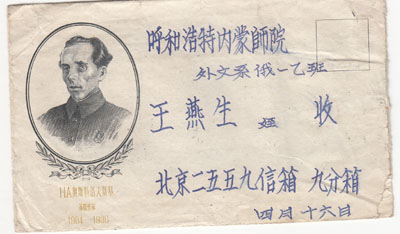 呼和浩特内蒙師院
外文系俄一乙班
王燕生 收
北京二五五九信箱 九分箱
四月十六日
1904-1936